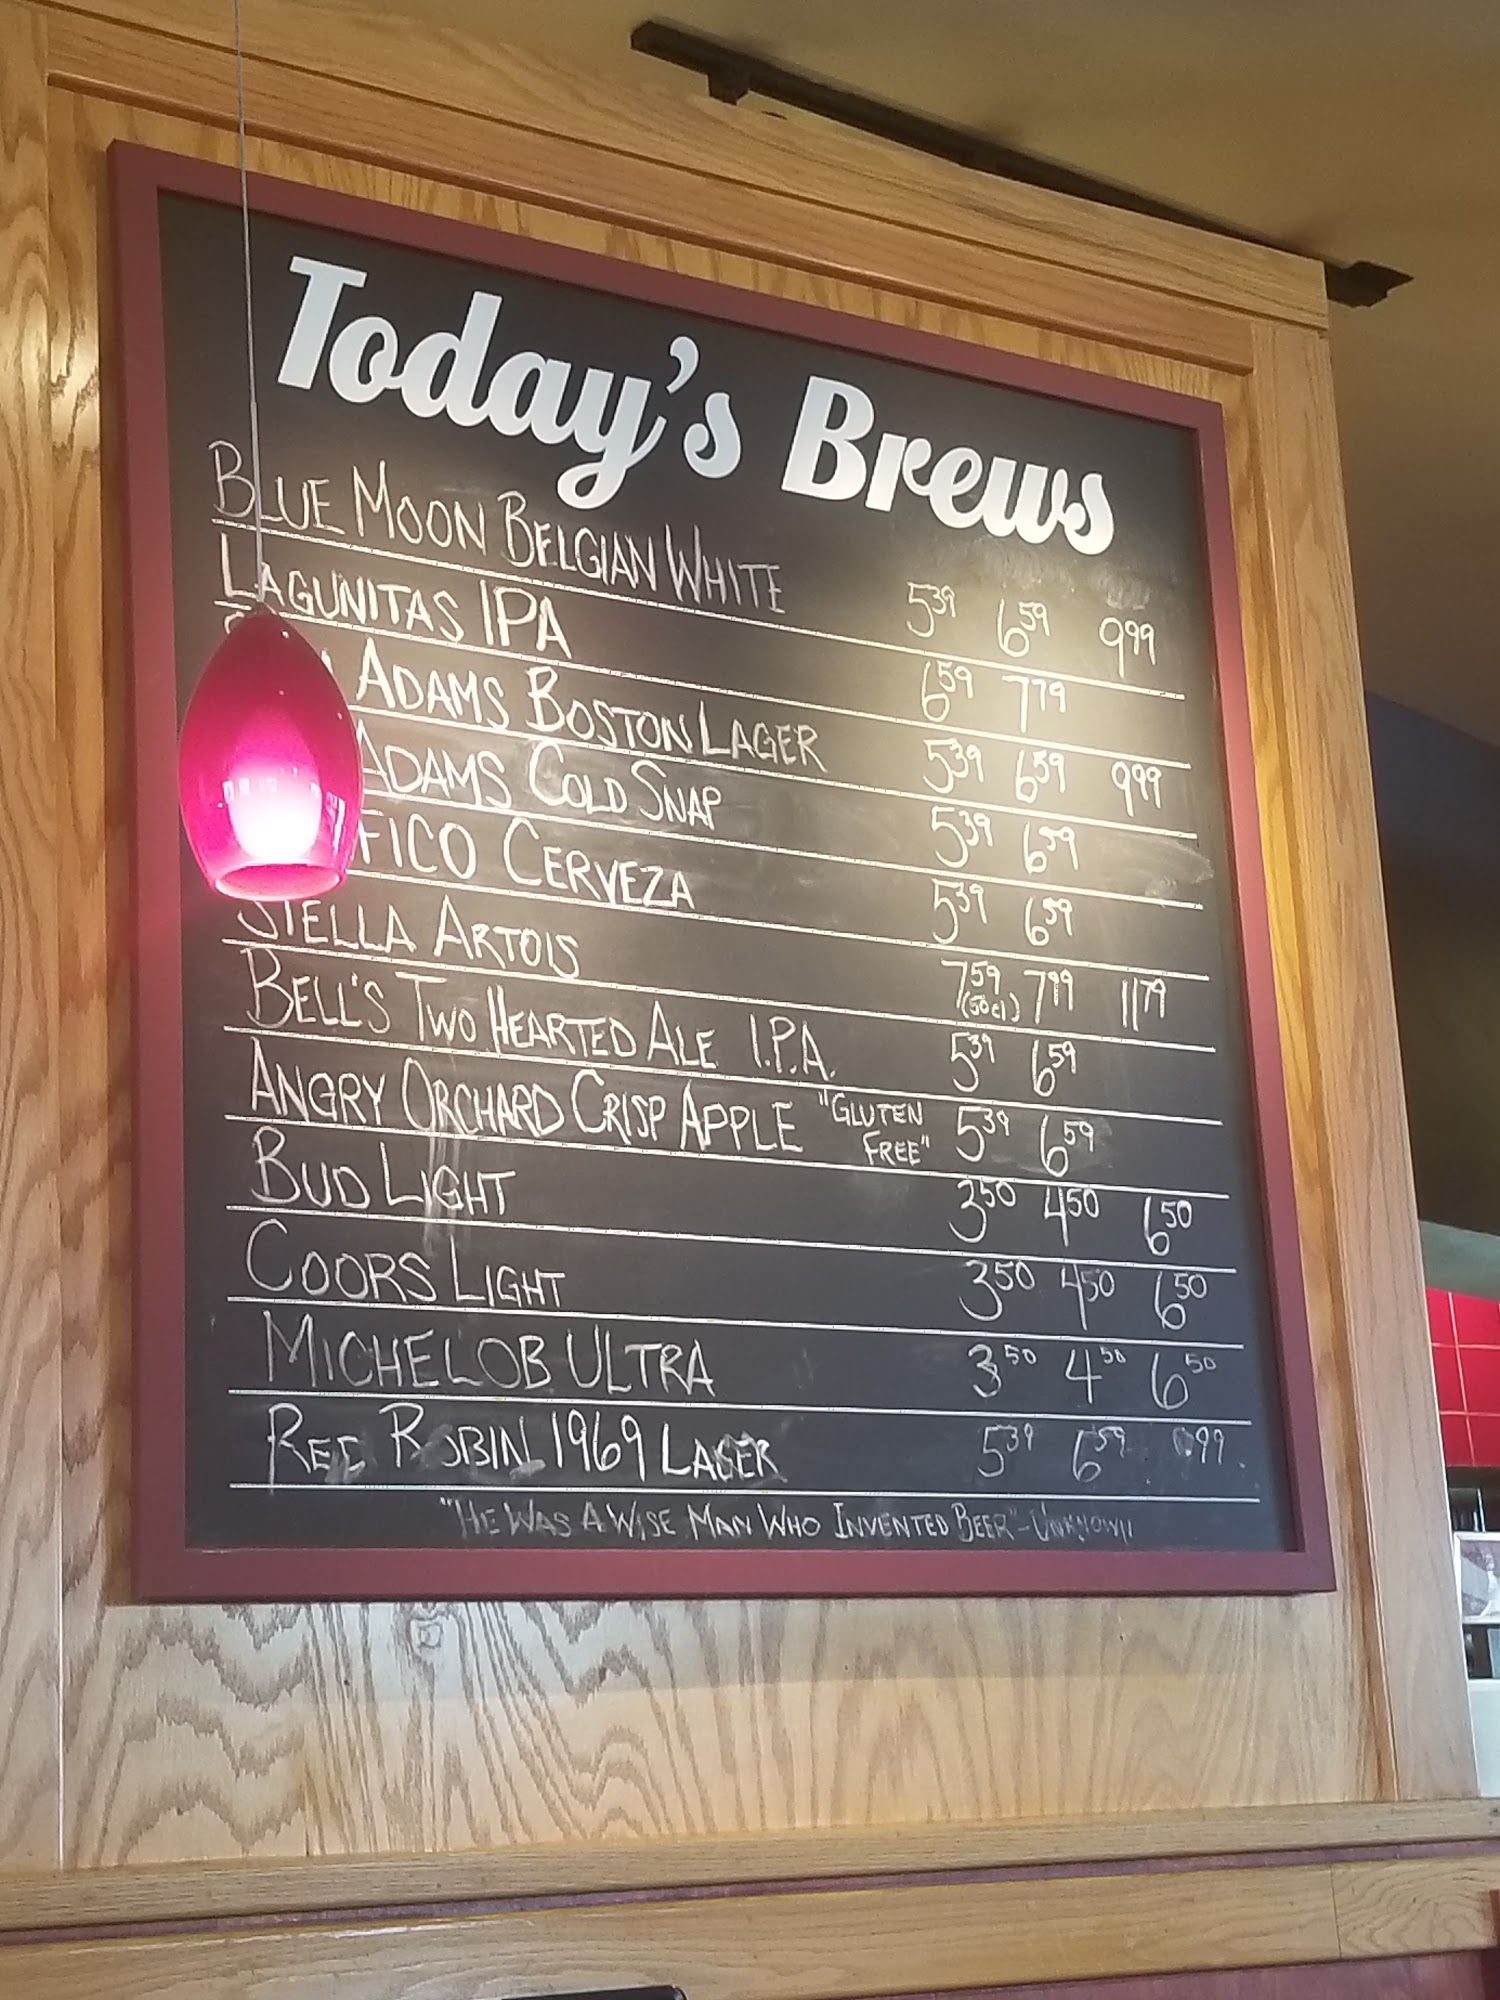 Today's Brews
BLUE MOON BELGIAN WHITE 5.39 6.59 9.99
LAGUNITAS IPA 6.59 7.79
ADAMS BOSTON LAGER 5.39 6.59 9.99
ADAMS COLD SNAP 5.39 6.59
FICO CERVEZA 5.39 6.59
STELLA ARTOIS 7.59 (50cl) 7.99 11.79
BELL'S TWO HEARTED ALE I.P.A. 5.39 6.59
ANGRY ORCHARD CRISP APPLE "GLUTEN FREE" 5.39 6.59
BUD LIGHT 3.50 4.50 6.50
COORS LIGHT 3.50 4.50 6.50
MICHELOB ULTRA 3.50 4.50 6.50
RED ROBIN 1969 LAGER 5.39 6.59 9.99
"HE WAS A WISE MAN WHO INVENTED BEER" - UNKNOWN